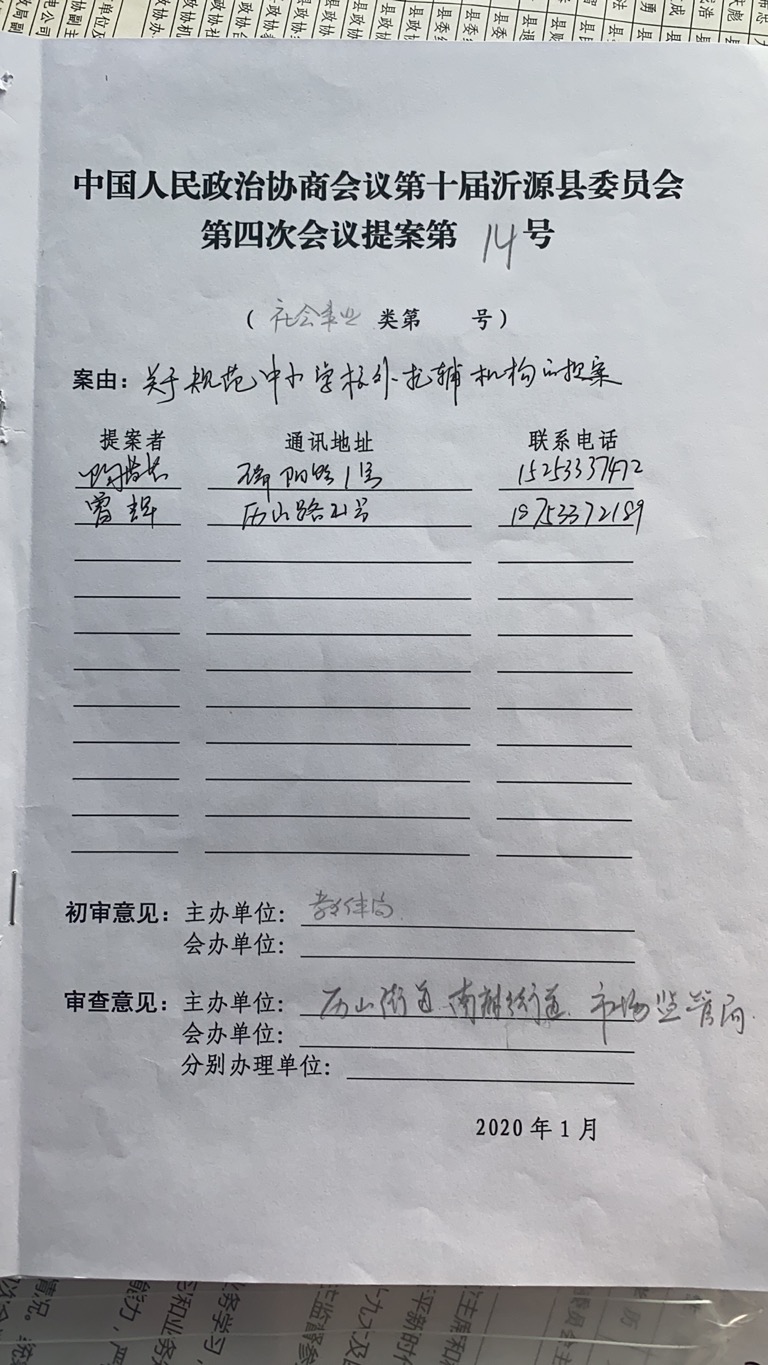 中国人民政治协商会议第十届沂源县委员会
第四次会议提案第 14 号
（ 社会事业 类第 号）
案由：关于规范中小学校外托辅机构的提案
提案者 通讯地址 联系电话
瑞阳路1号 15253337472
历山路21号 18753372189
初审意见：主办单位：教体局
会办单位：
审查意见：主办单位：历山街道、南麻街道、市场监管局
会办单位：
分别办理单位：
2020年1月